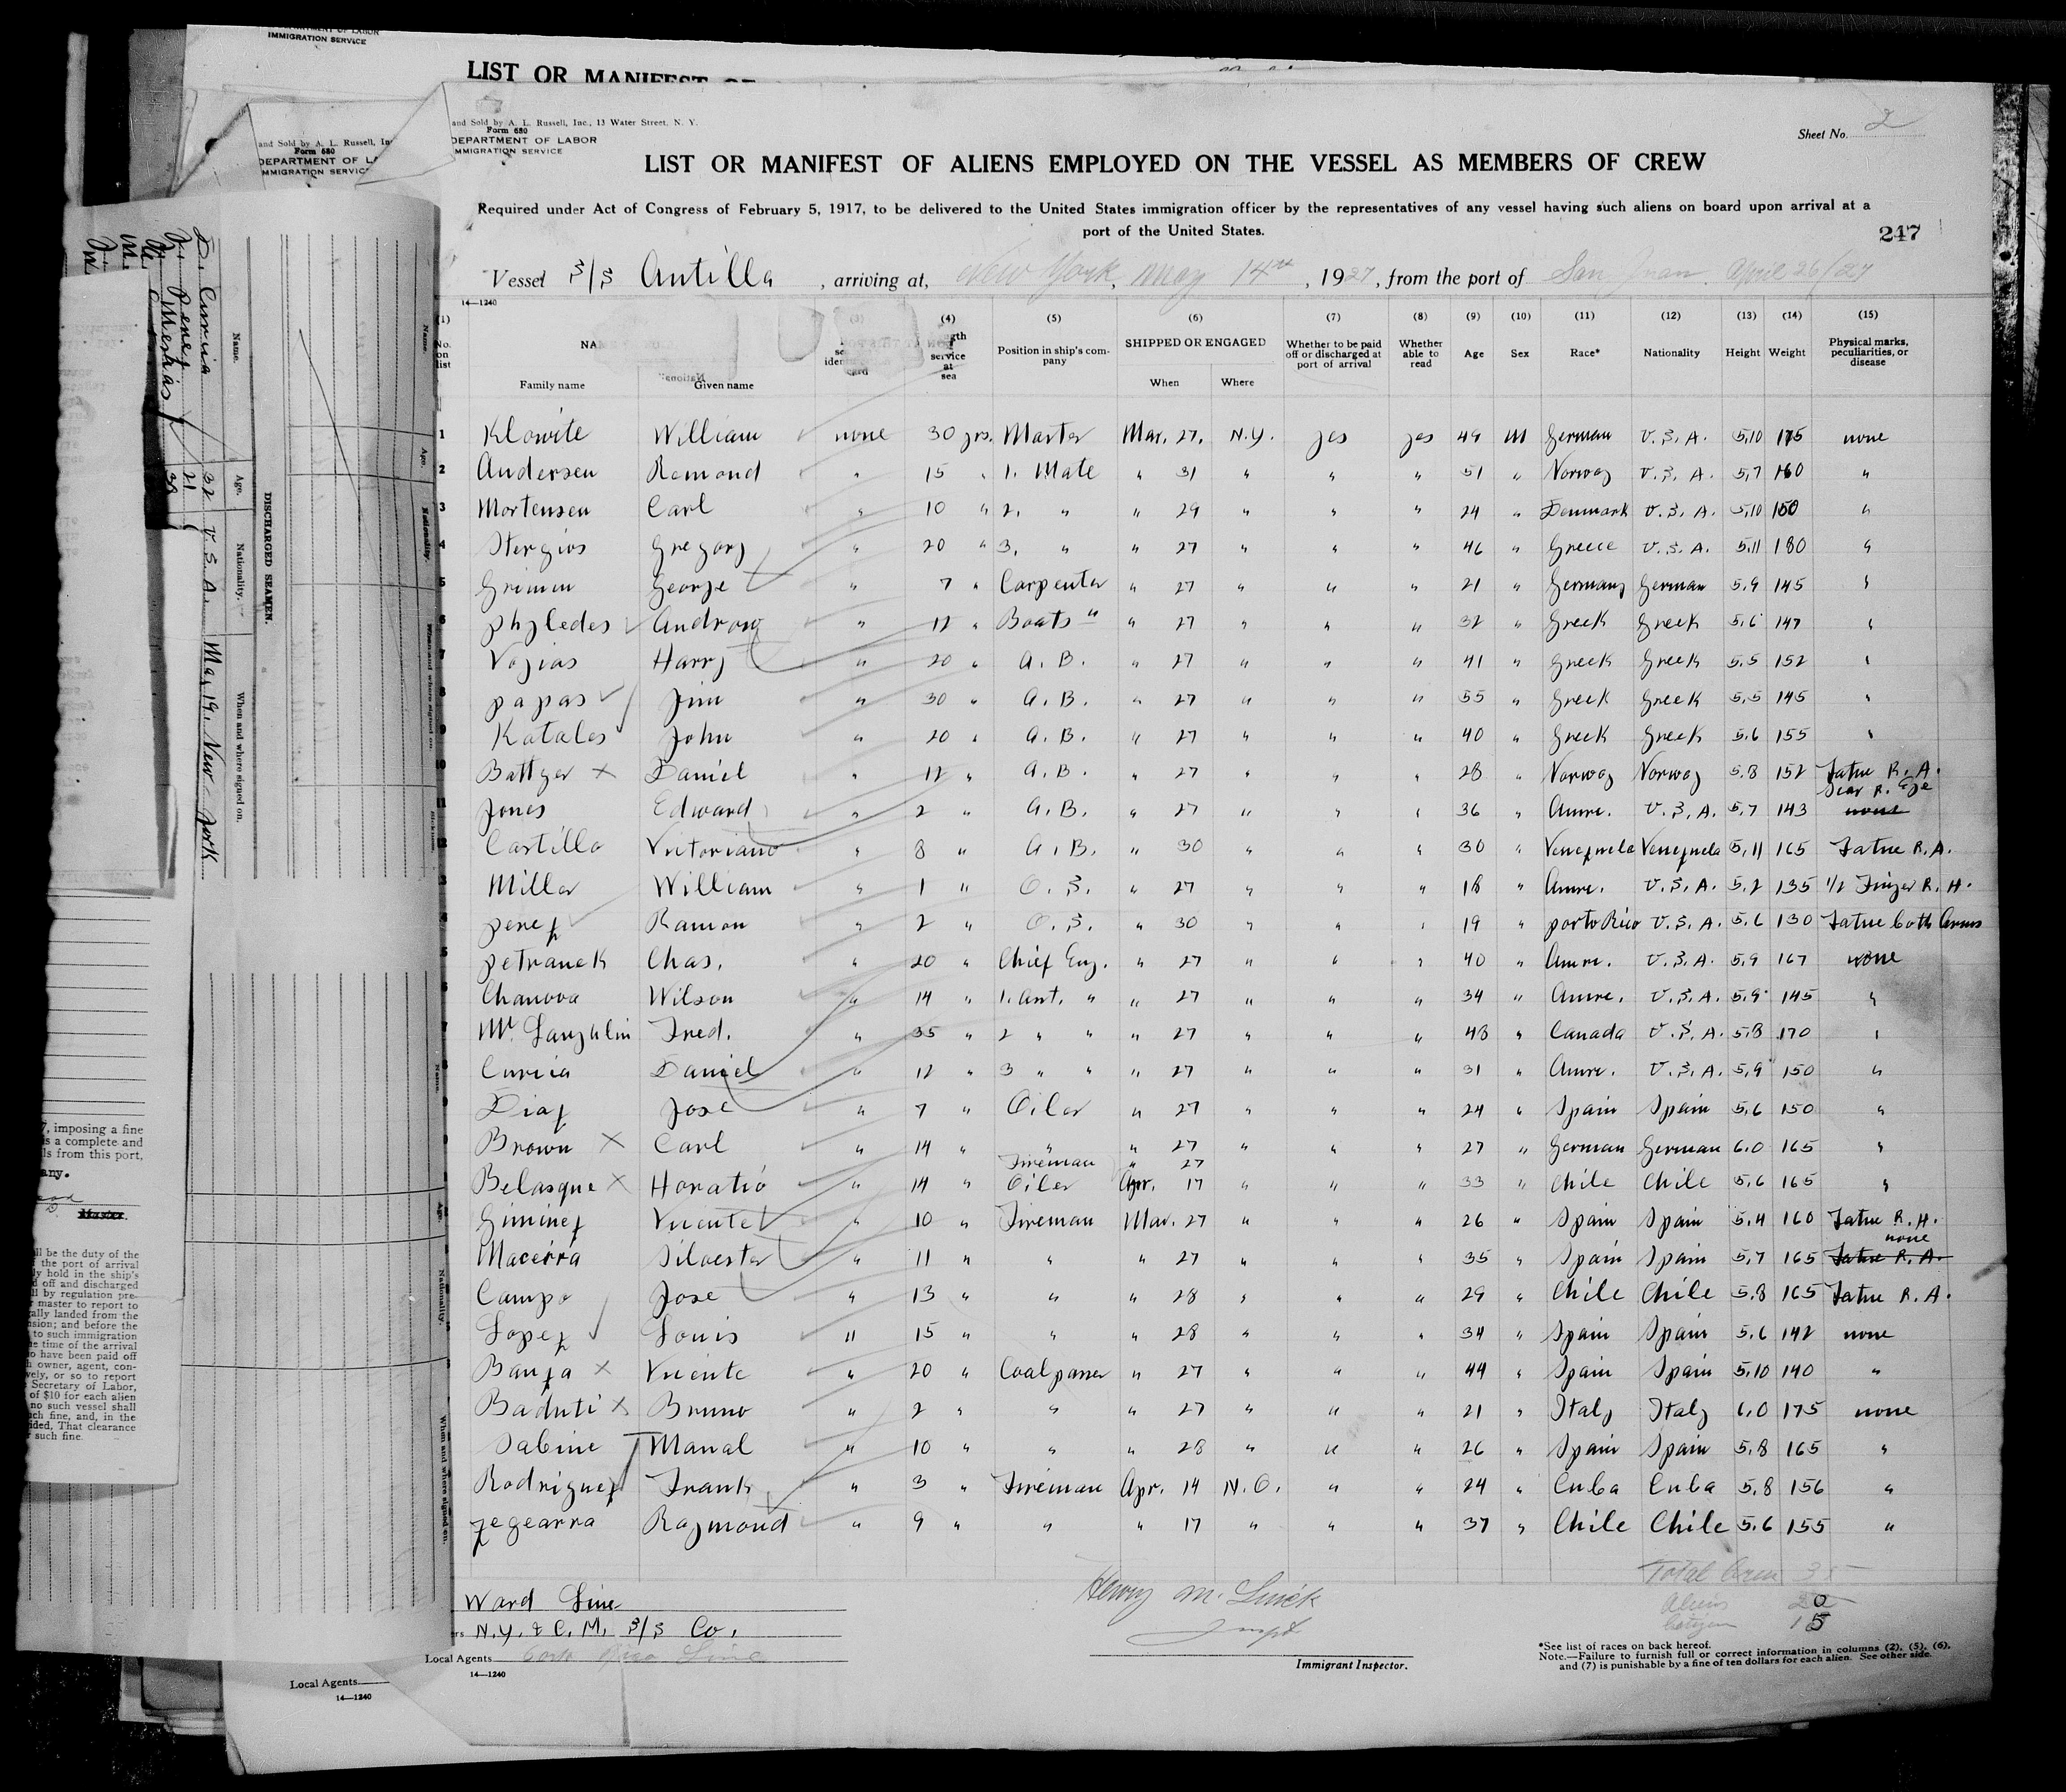 IMMIGRATION SERVICE
LIST OR MANIFEST OF
and Sold by A. L. Russell, In
Form 680
DEPARTMENT OF LA
MMIGRATION SERVIC
and Sold by A. L. Russell, Inc., 13 Water Street, N. Y.
Form 680
DEPARTMENT OF LABOR
MMIGRATION SERVICE
Sheet No. 2
LIST OR MANIFEST OF ALIENS EMPLOYED ON THE VESSEL AS MEMBERS OF CREW
Required under Act of Congress of February 5, 1917, to be delivered to the United States immigration officer by the representatives of any vessel having such aliens on board upon arrival at a
port of the United States.
247
Vessel S/S Antilla, arriving at, New York, May 14th, 1927, from the port of San Juan April 26/27
14—1240
(1) (3) (4) (5) (6) (7) (8) (9) (10) (11) (12) (13) (14) (15)
No. on list
Family name Given name
service at sea
Position in ship's company
SHIPPED OR ENGAGED
When Where
Whether to be paid off or discharged at port of arrival
Whether able to read
Age Sex Race* Nationality Height Weight
Physical marks, peculiarities, or disease
1 Klowite William none 30 yrs. Master Mar. 27, N.Y. yes yes 49 M German U.S.A. 5,10 175 none
2 Andersen Remond " 15 " 1. Mate " 31 " " " 51 " Norway U.S.A. 5,7 160 "
3 Mortensen Carl " 10 " 2. " " 29 " " " 24 " Denmark U.S.A. 5,10 150 "
4 Stergios Gregory " 20 " 3. " " 27 " " " 46 " Greece U.S.A. 5,11 180 "
5 Grimm George " 7 " Carpenter " 27 " " " 21 " Germany German 5,9 145 "
6 Phyledes Androw " 12 " Boats " " 27 " " " 32 " Greek Greek 5,6 147 "
7 Vojias Harry " 20 " A.B. " 27 " " " 41 " Greek Greek 5,5 152 "
8 Papas Jim " 30 " A.B. " 27 " " " 55 " Greek Greek 5,5 145 "
9 Katales John " 20 " A.B. " 27 " " " 40 " Greek Greek 5,6 155 "
10 Battger X Daniel " 12 " A.B. " 27 " " " 28 " Norway Norway 5,8 152 Tatue R.A.
Scar R. Eye
11 Jones Edward " 2 " A.B. " 27 " " " 36 " Amre. U.S.A. 5,7 143 none
12 Castillo Victoriano " 8 " A.B. " 30 " " " 30 " Venezuela Venezuela 5,11 165 Tatue R.A.
3 Miller William " 1 " O.S. " 27 " " " 18 " Amre. U.S.A. 5,2 135 1/2 Finger R.H.
4 Perez Ramon " 2 " O.S. " 30 " " " 19 " Porto Rico U.S.A. 5,6 130 Tatue both Arms
5 Petranek Chas. " 20 " Chief Eng. " 27 " " " 40 " Amre. U.S.A. 5,9 167 none
6 Chanova Wilson " 14 " 1. Ant. " " 27 " " " 34 " Amre. U.S.A. 5,9 145 "
7 Fred. " 35 " 2 " " " 27 " " " 48 " Canada U.S.A. 5,8 170 "
8 Curcia Daniel " 12 " 3 " " " 27 " " " 31 " Amre. U.S.A. 5,9 150 "
9 Diaz Jose " 7 " Oiler " 27 " " " 24 " Spain Spain 5,6 150 "
Brown X Carl " 14 " " " 27 " " " 27 " German German 6,0 165 "
Fireman " 27
Belasque X Horatio " 14 " Oiler Apr. 17 " " " 33 " Chile Chile 5,6 165 "
Giminez Vicente " 10 " Fireman Mar. 27 " " " 26 " Spain Spain 5,4 160 Tatue R.H.
none
Macerra Silvester " 11 " " " 27 " " " 35 " Spain Spain 5,7 165 Tatue R.A.
Campo Jose " 13 " " " 28 " " " 29 " Chile Chile 5,8 165 Tatue R.A.
Lopez Louis " 15 " " " 28 " " " 34 " Spain Spain 5,6 142 none
Banza X Vicente " 20 " Coalpasser " 27 " " " 44 " Spain Spain 5,10 140 "
Baduti X Bruno " 2 " " " 27 " " " 21 " Italy Italy 6,0 175 none
Sabine Manal " 10 " " " 28 " " " 26 " Spain Spain 5,8 165 "
Rodriguez Frank " 3 " Fireman Apr. 14 N.O. " " 24 " Cuba Cuba 5,8 156 "
Zegearra Raymond " 9 " " " 17 " " " 37 " Chile Chile 5,6 155 "
Total Crew 35
Aliens 20
Citizen 15
Ward Line
N.Y. & C.M. S/S Co.
Local Agents Porto Rico Line
14—1240
Henry M.
Immigrant Inspector.
*See list of races on back hereof.
Note.—Failure to furnish full or correct information in columns (2), (5), (6),
and (7) is punishable by a fine of ten dollars for each alien. See other side.
Local Agents
14—1240
DISCHARGED SEAMEN.
Name. Age. Nationality. When and where signed on.
D. Curcia 32 U.S.A. May 19. New York
J. Perez 21
Mestrias 38
7, imposing a fine
is a complete and
ls from this port,
any.
Master.
all be the duty of the
f the port of arrival
ly hold in the ship's
d off and discharged
ll by regulation pre-
r master to report to
ally landed from the
nsion; and before the
to such immigration
he time of the arrival
o have been paid off
h owner, agent, con-
vely, or so to report
Secretary of Labor,
of $10 for each alien
no such vessel shall
ch fine, and, in the
ided, That clearance
such fine.